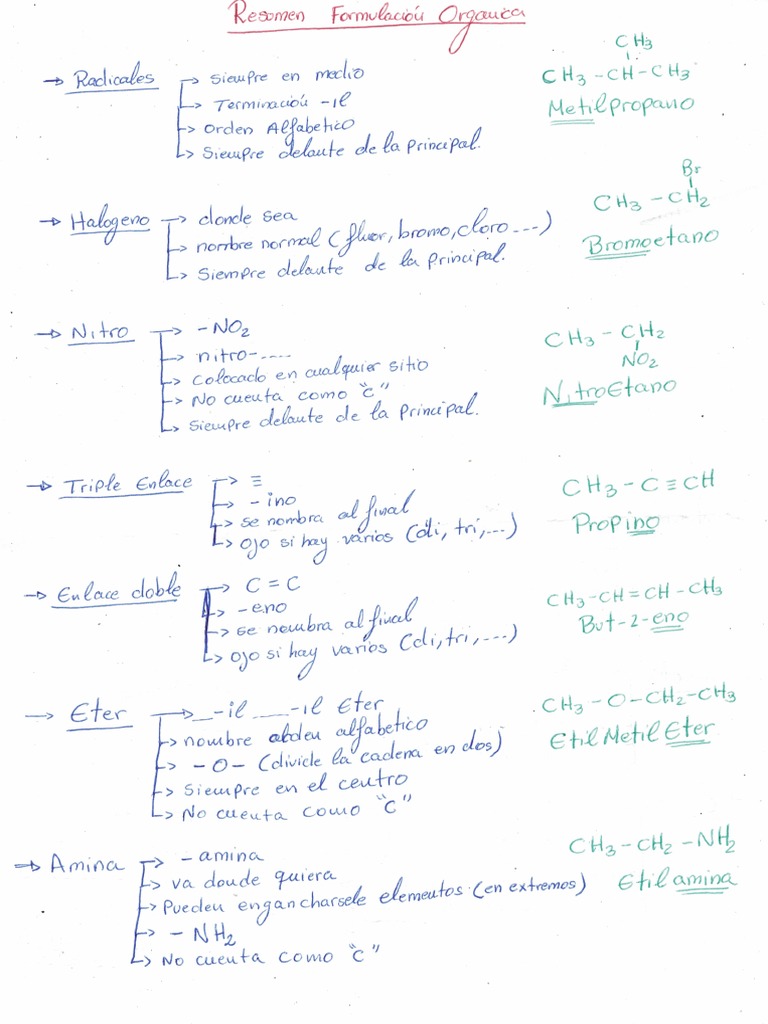 Resumen Formulación Organica
→ Radicales → Siempre en medio
→ Terminación -il
→ Orden Alfabetico
→ Siempre delante de la principal.
CH3
CH3 - CH - CH3
Metilpropano
→ Halogeno → donde sea
→ nombre normal (fluor, bromo, cloro ...)
→ Siempre delante de la principal.
Br
CH3 - CH2
Bromoetano
→ Nitro → - NO2
→ nitro-....
→ Colocado en cualquier sitio
→ No cuenta como "C"
→ Siempre delante de la principal.
CH3 - CH2
NO2
NitroEtano
→ Triple Enlace → ≡
→ - ino
→ se nombra al final
→ ojo si hay varios (di, tri, ...)
CH3 - C ≡ CH
Propino
→ Enlace doble → C = C
→ -eno
→ se nombra al final
→ ojo si hay varios (di, tri, ...)
CH3 - CH = CH - CH3
But-2-eno
→ Eter → __-il ___-il Eter
→ nombre alfabetico
→ - O - (divide la cadena en dos)
→ Siempre en el centro
→ No cuenta como "C"
CH3 - O - CH2 - CH3
Etil Metil Eter
→ Amina → - amina
→ va donde quiera
→ Pueden engancharsele elementos (en extremos)
→ - NH2
→ No cuenta como "C"
CH3 - CH2 - NH2
Etilamina